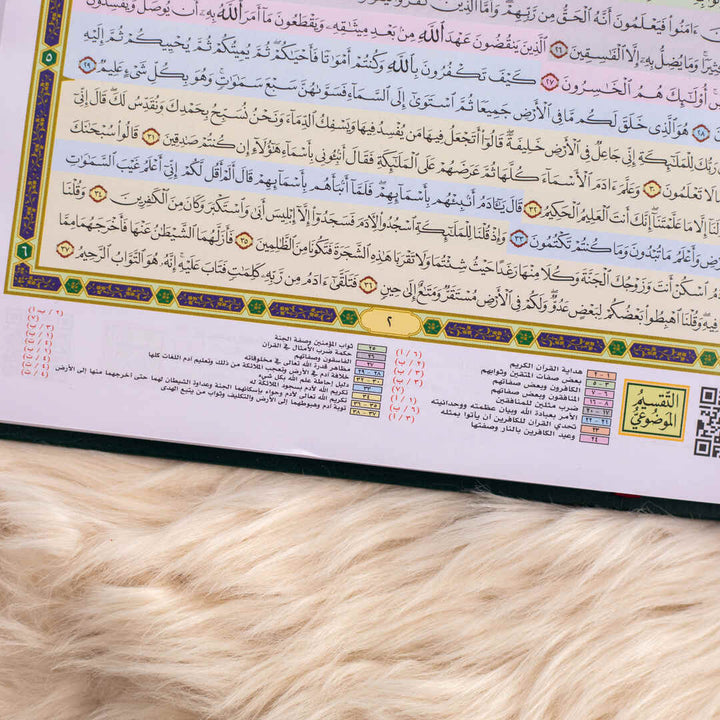 ءَامَنُوا۟ فَيَعْلَمُونَ أَنَّهُ ٱلْحَقُّ مِن رَّبِّهِمْ ۖ وَأَمَّا ٱلَّذِينَ
وَمَا يُضِلُّ بِهِۦٓ إِلَّا ٱلْفَـٰسِقِينَ ٢٦ ٱلَّذِينَ يَنقُضُونَ عَهْدَ ٱللَّهِ مِنۢ بَعْدِ مِيثَـٰقِهِۦ وَيَقْطَعُونَ مَآ أَمَرَ ٱللَّهُ بِهِۦٓ أَن يُوصَلَ وَيُفْسِدُونَ
أُو۟لَـٰٓئِكَ هُمُ ٱلْخَـٰسِرُونَ ٢٧ كَيْفَ تَكْفُرُونَ بِٱللَّهِ وَكُنتُمْ أَمْوَٰتًا فَأَحْيَـٰكُمْ ۖ ثُمَّ يُمِيتُكُمْ ثُمَّ يُحْيِيكُمْ ثُمَّ إِلَيْهِ
٢٨ هُوَ ٱلَّذِى خَلَقَ لَكُم مَّا فِى ٱلْأَرْضِ جَمِيعًا ثُمَّ ٱسْتَوَىٰٓ إِلَى ٱلسَّمَآءِ فَسَوَّىٰهُنَّ سَبْعَ سَمَـٰوَٰتٍ ۚ وَهُوَ بِكُلِّ شَىْءٍ عَلِيمٌ ٢٩
رَبُّكَ لِلْمَلَـٰٓئِكَةِ إِنِّى جَاعِلٌ فِى ٱلْأَرْضِ خَلِيفَةً ۖ قَالُوٓا۟ أَتَجْعَلُ فِيهَا مَن يُفْسِدُ فِيهَا وَيَسْفِكُ ٱلدِّمَآءَ وَنَحْنُ نُسَبِّحُ بِحَمْدِكَ وَنُقَدِّسُ لَكَ ۖ قَالَ إِنِّىٓ
لَا تَعْلَمُونَ ٣٠ وَعَلَّمَ ءَادَمَ ٱلْأَسْمَآءَ كُلَّهَا ثُمَّ عَرَضَهُمْ عَلَى ٱلْمَلَـٰٓئِكَةِ فَقَالَ أَنۢبِـُٔونِى بِأَسْمَآءِ هَـٰٓؤُلَآءِ إِن كُنتُمْ صَـٰدِقِينَ ٣١ قَالُوا۟ سُبْحَـٰنَكَ
لَنَآ إِلَّا مَا عَلَّمْتَنَآ ۖ إِنَّكَ أَنتَ ٱلْعَلِيمُ ٱلْحَكِيمُ ٣٢ قَالَ يَـٰٓـَٔادَمُ أَنۢبِئْهُم بِأَسْمَآئِهِمْ ۖ فَلَمَّآ أَنۢبَأَهُم بِأَسْمَآئِهِمْ قَالَ أَلَمْ أَقُل لَّكُمْ إِنِّىٓ أَعْلَمُ غَيْبَ ٱلسَّمَـٰوَٰتِ
وَأَعْلَمُ مَا تُبْدُونَ وَمَا كُنتُمْ تَكْتُمُونَ ٣٣ وَإِذْ قُلْنَا لِلْمَلَـٰٓئِكَةِ ٱسْجُدُوا۟ لِـَٔادَمَ فَسَجَدُوٓا۟ إِلَّآ إِبْلِيسَ أَبَىٰ وَٱسْتَكْبَرَ وَكَانَ مِنَ ٱلْكَـٰفِرِينَ ٣٤ وَقُلْنَا
ٱسْكُنْ أَنتَ وَزَوْجُكَ ٱلْجَنَّةَ وَكُلَا مِنْهَا رَغَدًا حَيْثُ شِئْتُمَا وَلَا تَقْرَبَا هَـٰذِهِ ٱلشَّجَرَةَ فَتَكُونَا مِنَ ٱلظَّـٰلِمِينَ ٣٥ فَأَزَلَّهُمَا ٱلشَّيْطَـٰنُ عَنْهَا فَأَخْرَجَهُمَا مِمَّا
فِيهِ ۖ وَقُلْنَا ٱهْبِطُوا۟ بَعْضُكُمْ لِبَعْضٍ عَدُوٌّ ۖ وَلَكُمْ فِى ٱلْأَرْضِ مُسْتَقَرٌّ وَمَتَـٰعٌ إِلَىٰ حِينٍ ٣٦ فَتَلَقَّىٰٓ ءَادَمُ مِن رَّبِّهِۦ كَلِمَـٰتٍ فَتَابَ عَلَيْهِ ۚ إِنَّهُۥ هُوَ ٱلتَّوَّابُ ٱلرَّحِيمُ ٣٧
٥
٦
٢
التقسيم
الموضوعي
١ - ٢ هداية القرآن الكريم
٣ - ٥ بعض صفات المتقين وثوابهم
٦ - ٧ الكافرون وبعض صفاتهم
٨ - ١٦ المنافقون وبعض صفاتهم
١٧ - ٢٠ ضرب مثلين للمنافقين
٢١ - ٢٢ الأمر بعبادة الله وبيان عظمته ووحدانيته
٢٣ تحدي القرآن للكافرين أن يأتوا بمثله
٢٤ وعيد الكافرين بالنار وصفتها
٢٥ ثواب المؤمنين وصفة الجنة
٢٦ حكمة ضرب الأمثال في القرآن
٢٧ الفاسقون وصفاتهم
٢٨ - ٢٩ مظاهر قدرة الله تعالى في مخلوقاته
خلافة آدم في الأرض وتعجب الملائكة من ذلك وتعليم آدم اللغات كلها
دليل إحاطة علم الله بكل شيء
٣٤ تكريم الله لآدم بسجود الملائكة له
تكريم الله تعالى لآدم وحواء بإسكانهما الجنة وعداوة الشيطان لهما حتى أخرجهما منها إلى الأرض
توبة آدم وهبوطهما إلى الأرض والتكليف وثواب من يتبع الهدى